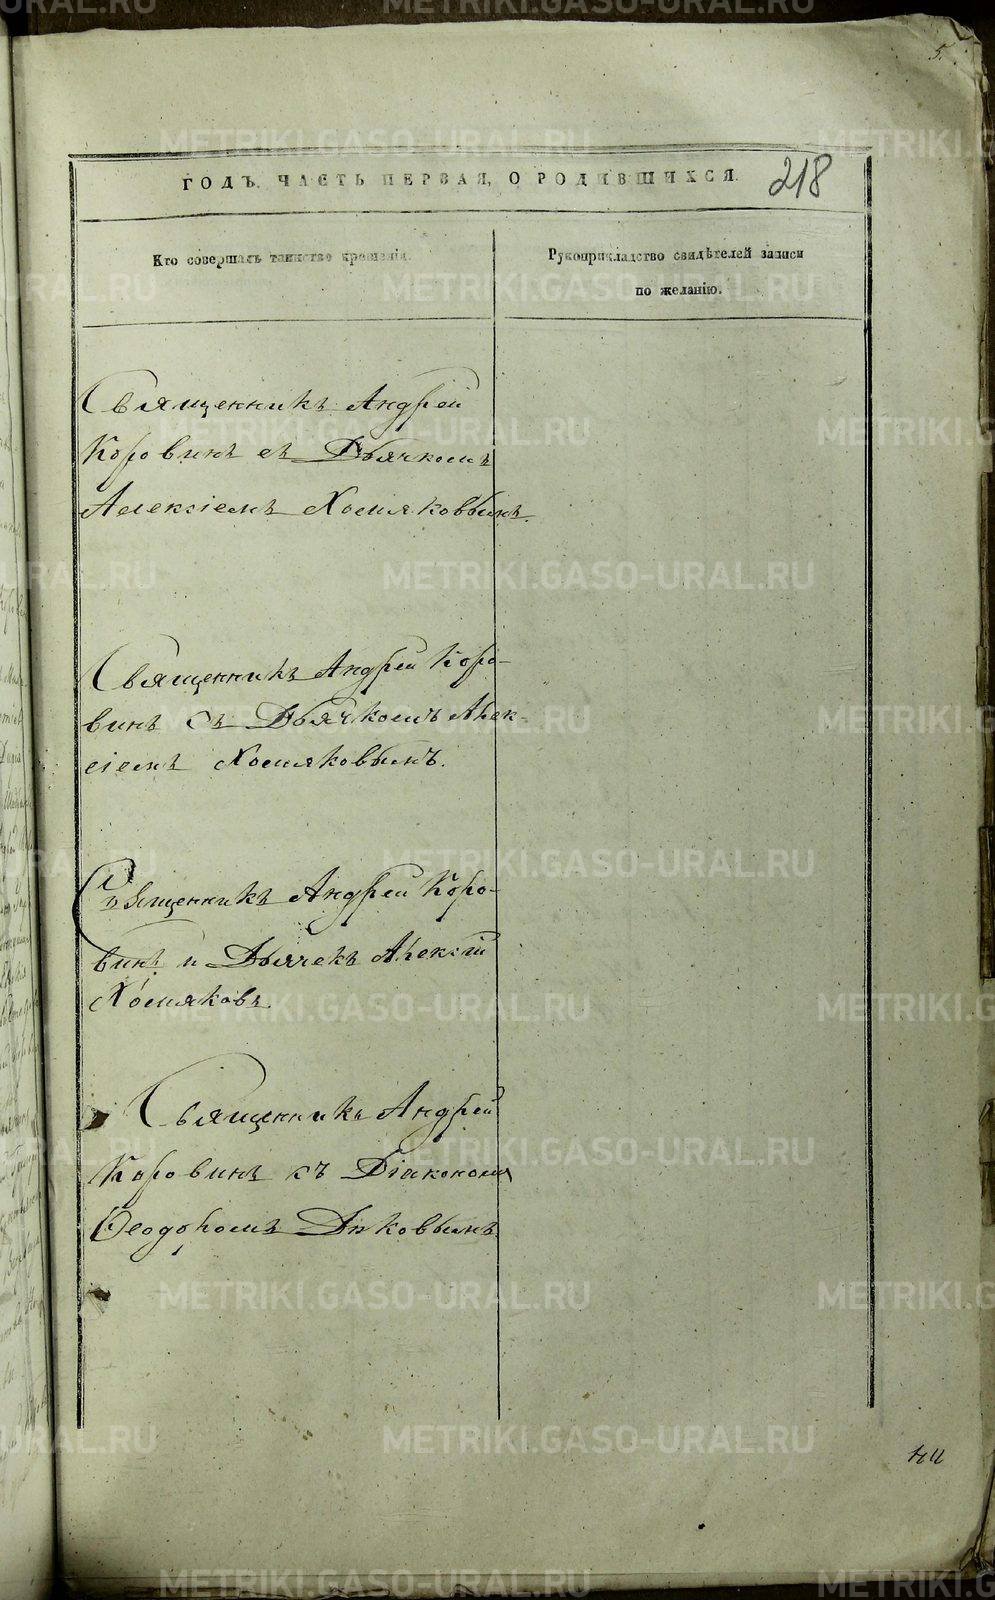 5.
ГОДЪ, ЧАСТЬ ПЕРВАЯ, О РОДИВШИХСЯ.
218
Кто совершалъ таинство крещенія.
Рукоприкладство свидѣтелей записи
по желанію.
Священникъ Андрей
Коровинъ съ Дьячкомъ
Алексіемъ Хомяковымъ.
Священникъ Андрей Коро-
винъ съ Дьячкомъ Алек-
сіемъ Хомяковымъ.
Священникъ Андрей Коро-
винъ и Дьячекъ Алексій
Хомяковъ.
Священникъ Андрей
Коровинъ съ Діакономъ
Ѳеодоромъ Диковымъ.
METRIKI.GASO-URAL.RU